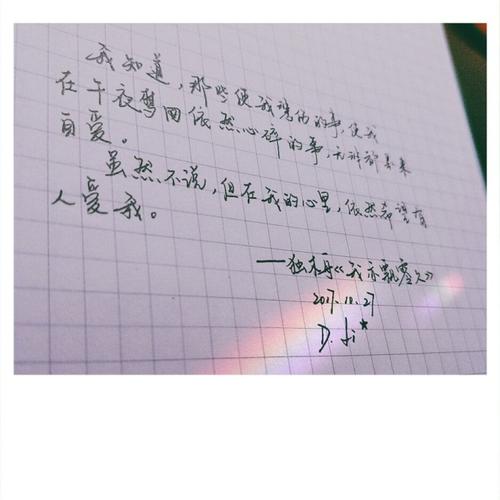 我知道，那些使我悲伤的事，使我
在午夜梦回依然心碎的事，无非都是来
自爱。
虽然不说，但在我的心里，依然希望有
人爱我。
——独木舟《我亦飘零久》
2017.10.27
D. Li